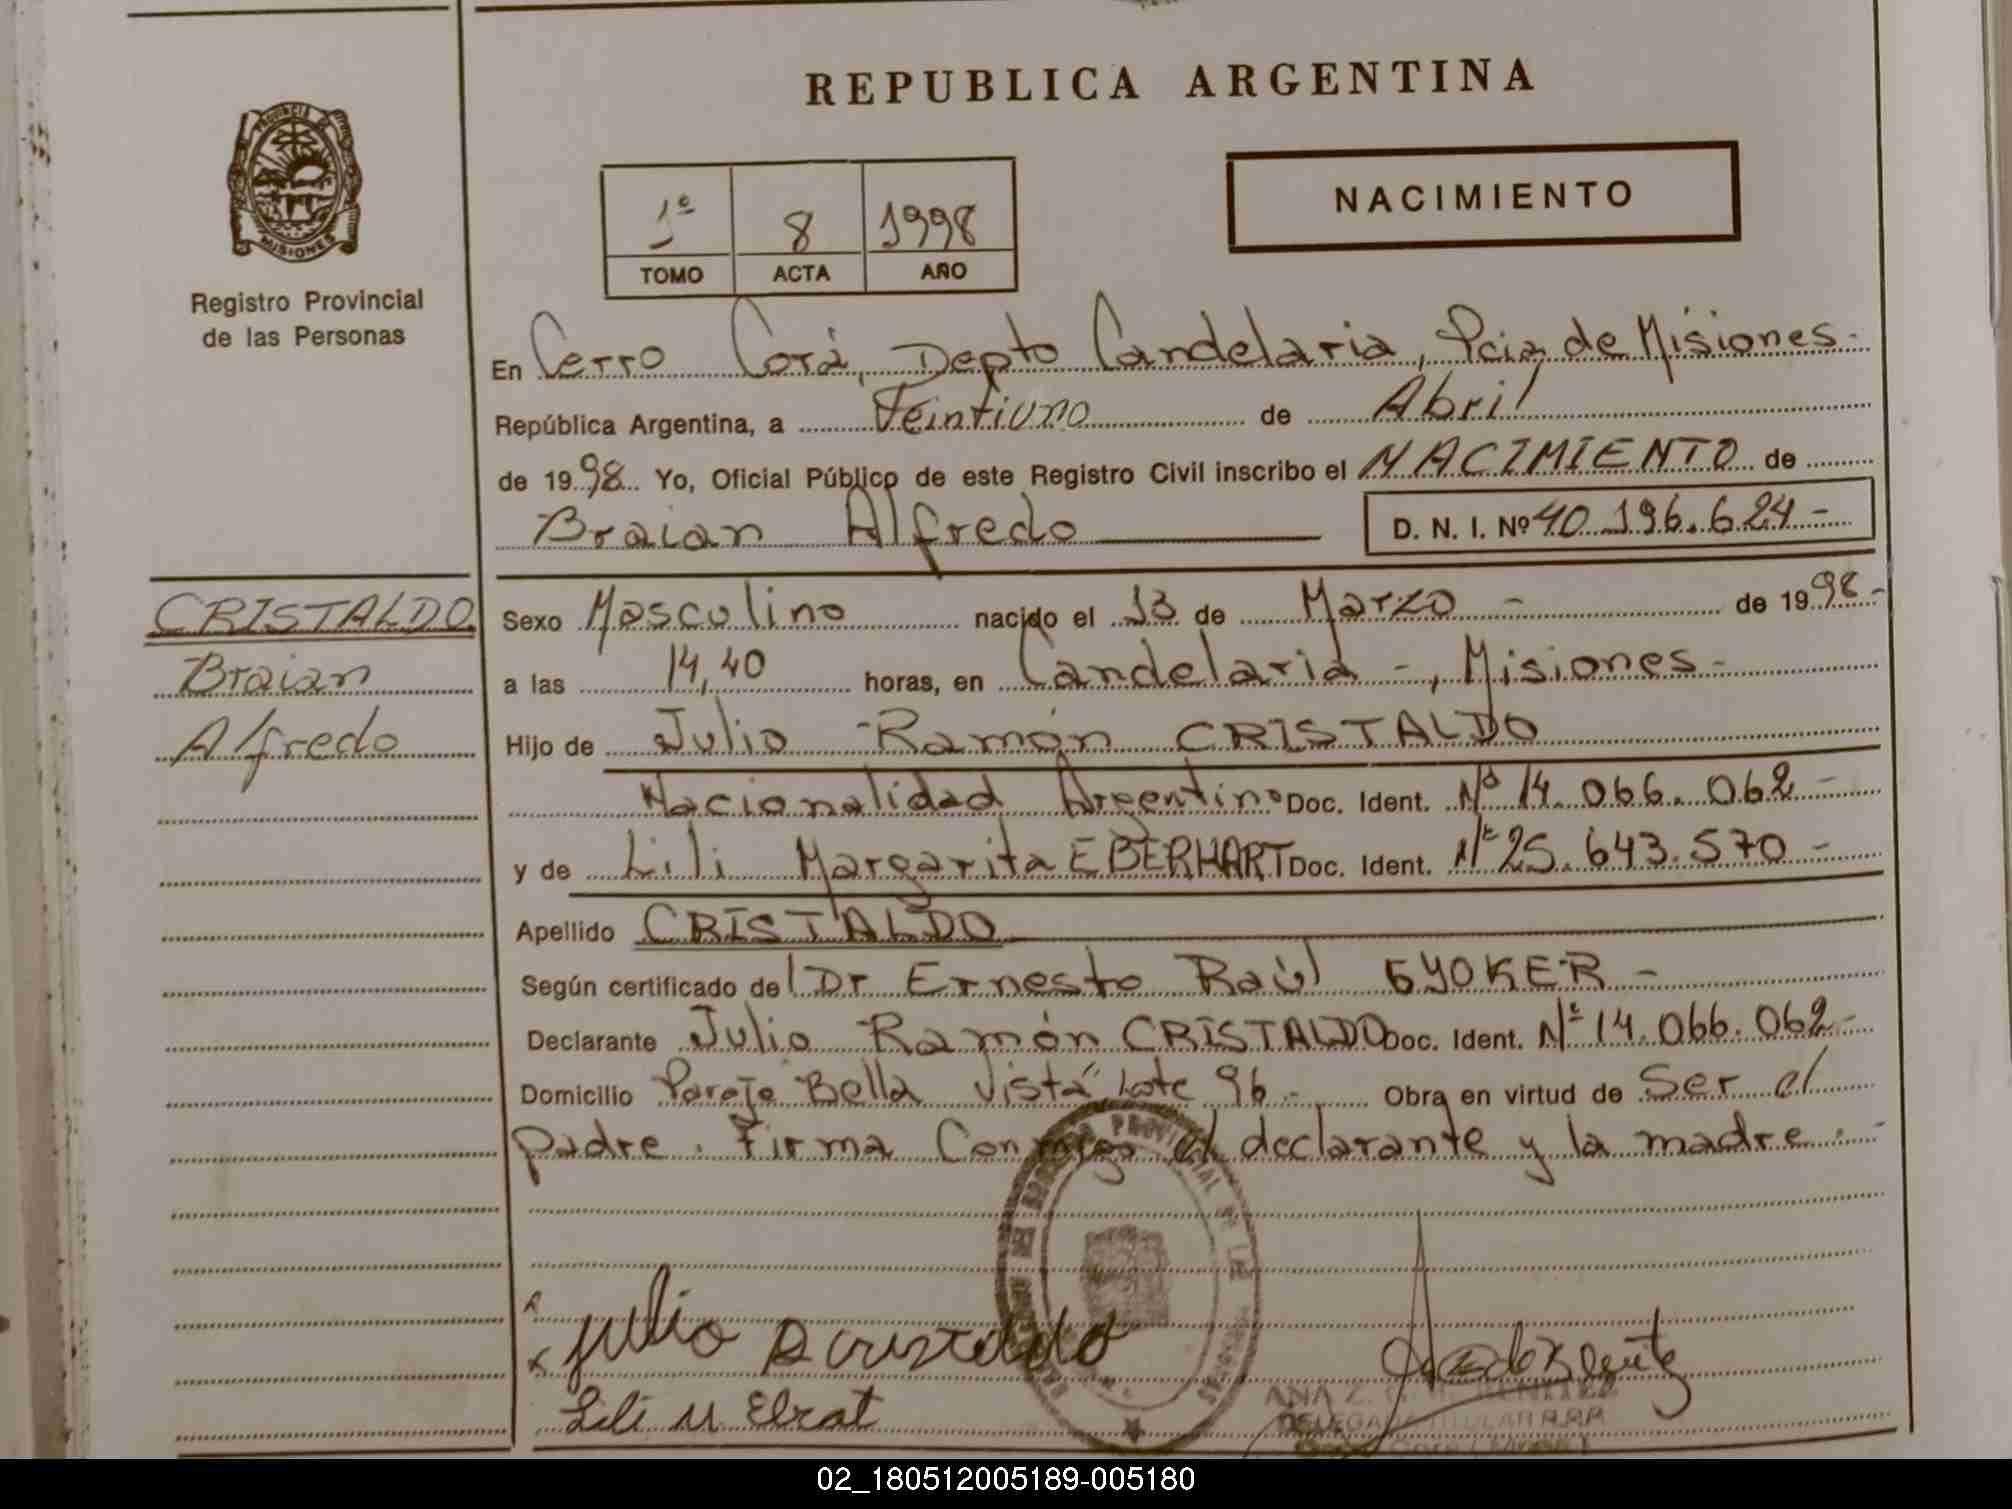 REPUBLICA ARGENTINA
PROVINCIA DE
MISIONES
Registro Provincial
de las Personas
1º 8 1998
TOMO ACTA AÑO
NACIMIENTO
En Cerro Corá, Depto Candelaria, Pcia de Misiones.-
República Argentina, a Veintiuno de Abril
de 1998 Yo, Oficial Público de este Registro Civil inscribo el NACIMIENTO de
Braian Alfredo D. N. I. Nº 40.196.624-
CRISTALDO
Braian
Alfredo
Sexo Masculino nacido el 13 de Marzo - de 1998-
a las 14,40 horas, en Candelaria -, Misiones-
Hijo de Julio Ramón CRISTALDO
Nacionalidad Argentino Doc. Ident. Nº 14.066.062-
y de Lili Margarita EBERHART Doc. Ident. Nº 25.643.570-
Apellido CRISTALDO
Según certificado de Dr Ernesto Raúl GYOKER-
Declarante Julio Ramón CRISTALDO Doc. Ident. Nº 14.066.062-
Domicilio Paraje "Bella Vista" Lote 96.- Obra en virtud de Ser el
padre. Firma Conmigo el declarante y la madre.-
Julio R Cristaldo
Lili M
ANA BENITEZ
02_180512005189-005180